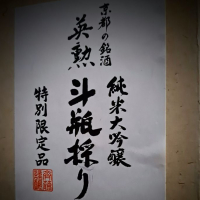 京都の銘酒
英勲
純米大吟醸
斗瓶採り
特別限定品